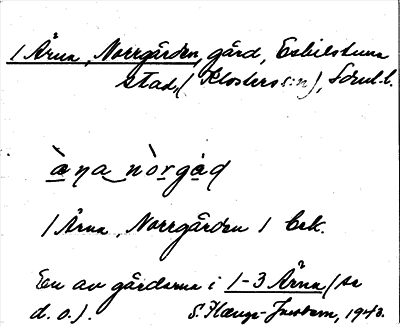 1 Ärna, Norrgården, gård, Eskilstuna
stad, (Klosters s:n), Söml.l.
àna nòrgàd
1 Ärna, Norrgården 1 bek.
En av gårdarna i 1-3 Ärna (se
d. o.). S., 1943.